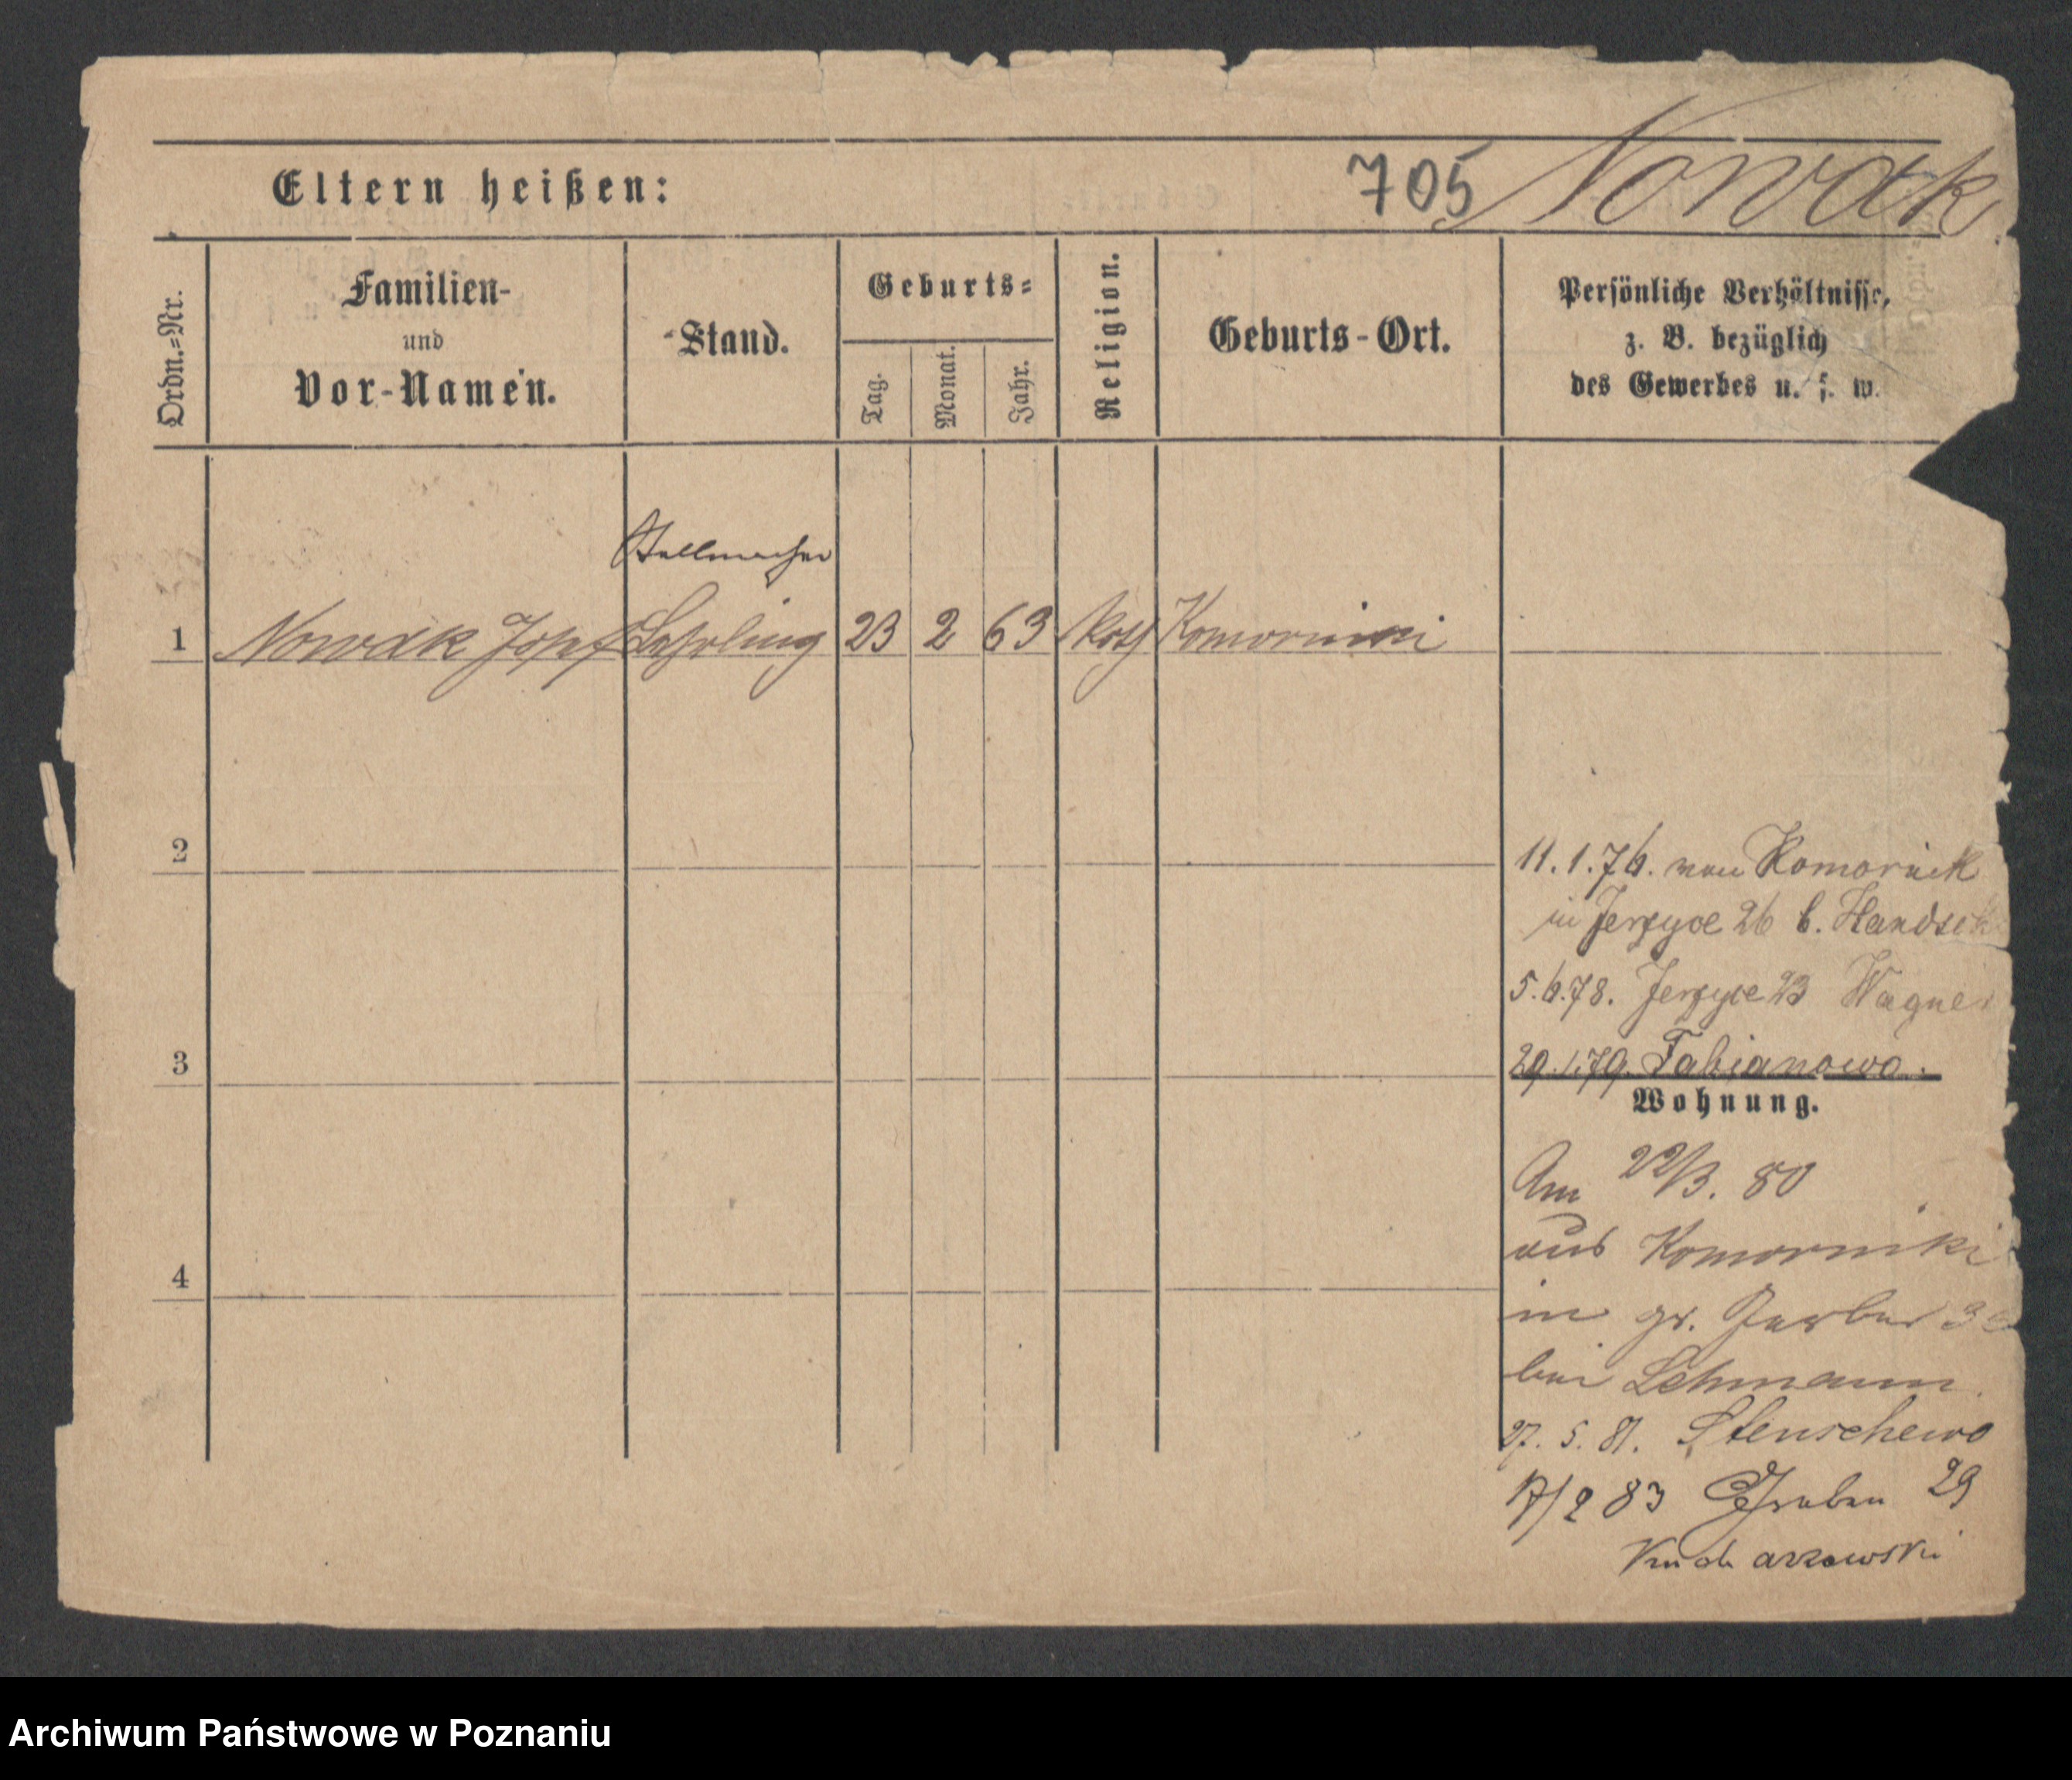 705 Nowak
Eltern heißen:
Ordn.=Nr.
Familien-
und
Vor-Namen.
Stand.
Geburts=
Tag.
Monat.
Jahr.
Religion.
Geburts-Ort.
Persönliche Verhältnisse,
z. B. bezüglich
des Gewerbes u. s. w.
Stellmacher
1 Nowak Josef Lehrling 23 2 63 kath Komorniki
2
11.1.76. von Komornik
in Jerzyce 26 b. Handsch
5.6.78. Jerzyce 23 Wagner
3
29.1.79. Fabianowo.
Wohnung.
Am 22/3. 80
aus Komorniki
4
in gr. Gerber 3
bei Lehmann
27. 5. 81. Stenschewo
17/2 83 Graben 29
Archiwum Państwowe w Poznaniu